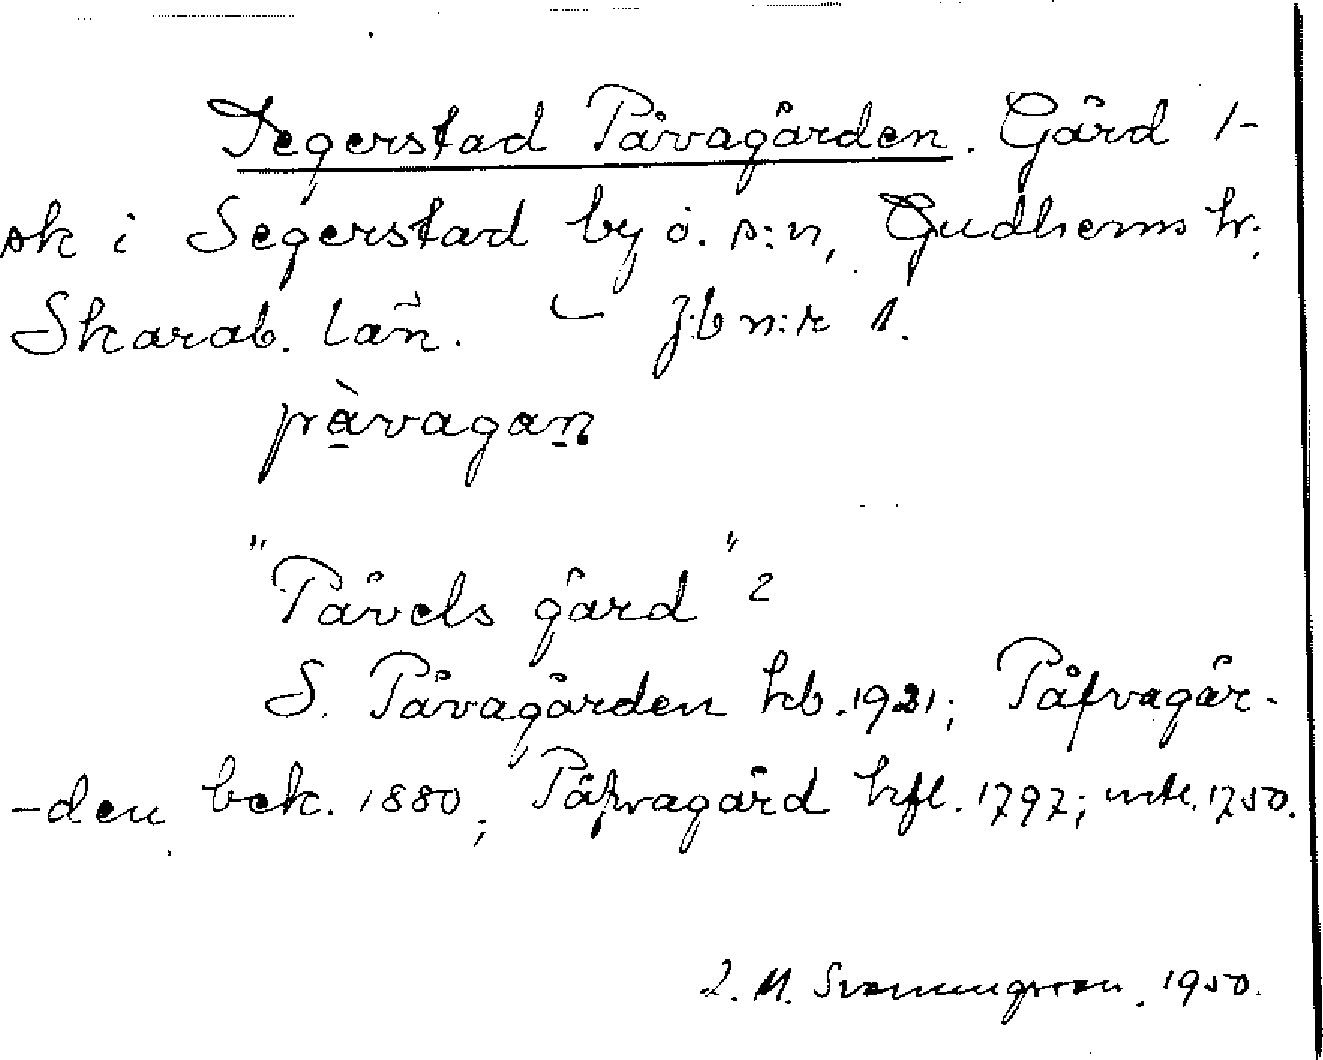 Segerstad Påvagården. Gård 1-
sk i Segerstad by o. s:n, Gudhems hr.
Skarab. län. – J:b n:r 1.
pàvagan
"Påvels gård" 2
S. Påvagården kb. 1921; Påfvagår-
-den bek. 1880; Påfvagård hfl. 1797; mtl. 1750.
1950.